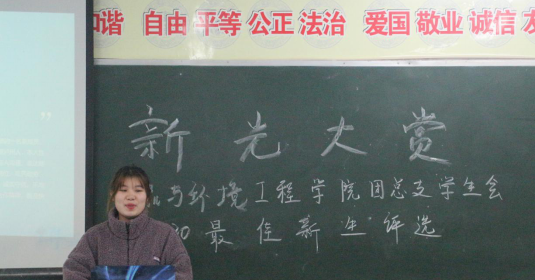 和谐 自由 平等 公正 法治 爱国 敬业 诚信 友
新光大赏
与环境工程学院团总支学生会
最佳新生评选